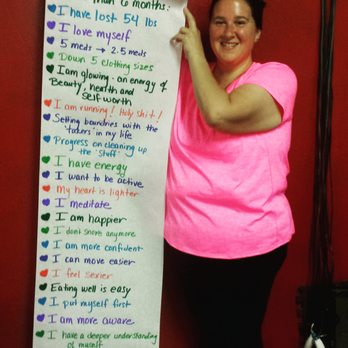 than 6 months:
I have lost 54 lbs
I love myself
5 meds → 2.5 meds
Down 5 clothing sizes
I am glowing: an energy of
Beauty, health and
Self worth
I am running! Holy shit!
Setting boundries with the
"takers" in my life
Progress on cleaning up
the "stuff"
I have energy
I want to be active
My heart is lighter
I meditate
I am happier
I don't snore anymore
I am more confident
I can move easier
I feel sexier
Eating well is easy
I put myself first
I am more aware
I have a deeper understanding
of myself